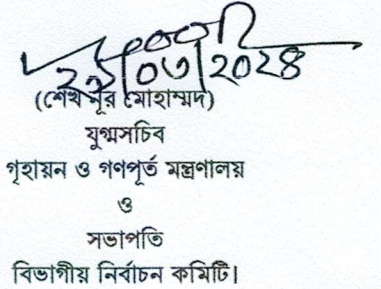 ২১/০৩/2024
(শেখ নূর মোহাম্মদ)
যুগ্মসচিব
গৃহায়ন ও গণপূর্ত মন্ত্রণালয়
ও
সভাপতি
বিভাগীয় নির্বাচন কমিটি।